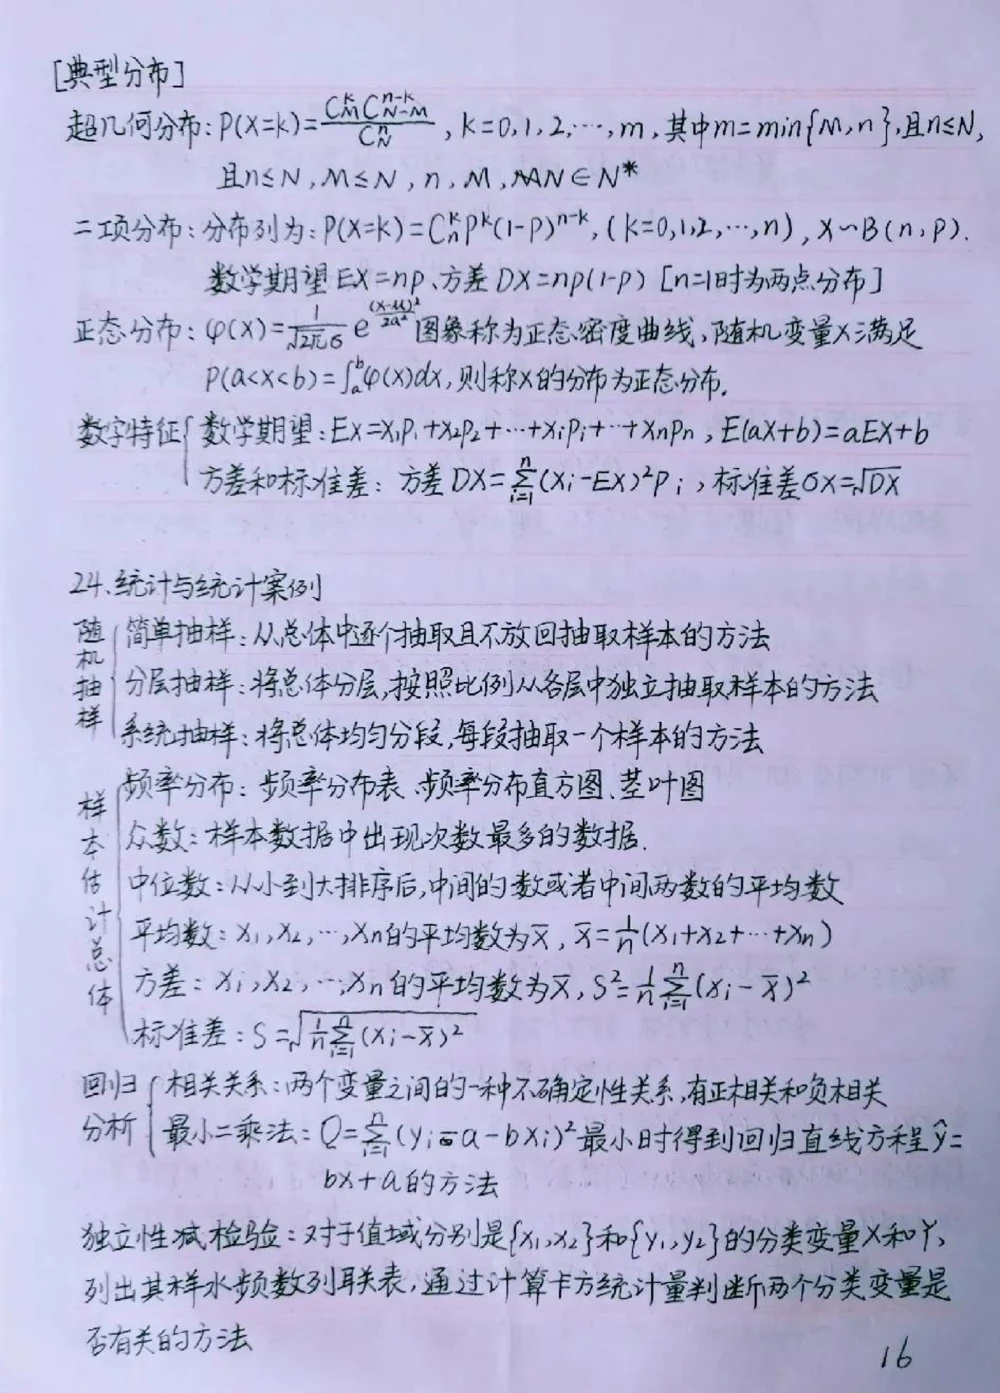 [典型分布]
超几何分布: P(X=k)=\frac{C_M^k C_{N-M}^{n-k}}{C_N^n}, k=0,1,2,…,m, 其中m=min{M,n},且n≤N,
且n≤N, M≤N, n, M, N∈N*
二项分布: 分布列为: P(X=k)=C_n^k P^k(1-P)^{n-k}, (k=0,1,2,…,n), X∽B(n,P).
数学期望EX=np、方差DX=np(1-p) [n=1时为两点分布]
正态分布: φ(X)=\frac{1}{\sqrt{2π}σ} e^{\frac{(x-μ)^2}{2a^2}} 图象称为正态密度曲线,随机变量X满足
P(a<x<b)=∫_a^b φ(x)dx, 则称X的分布为正态分布.
数字特征{ 数学期望: Ex=x_1p_1+x_2p_2+…+x_ip_i+…+x_np_n, E(aX+b)=aEX+b
方差和标准差: 方差DX=\sum_{i=1}^{n}(x_i-EX)^2p_i, 标准差σX=\sqrt{DX}
24、统计与统计案例
随机抽样{ 简单抽样: 从总体中逐个抽取且不放回抽取样本的方法
分层抽样: 将总体分层,按照比例从各层中独立抽取样本的方法
系统抽样: 将总体均匀分段,每段抽取一个样本的方法
样本估计总体{ 频率分布: 频率分布表、频率分布直方图、茎叶图
众数: 样本数据中出现次数最多的数据.
中位数: 从小到大排序后,中间的数或者中间两数的平均数
平均数: x_1,x_2,…,x_n的平均数为x̄, x̄=\frac{1}{n}(x_1+x_2+…+x_n)
方差: x_1,x_2,…,x_n的平均数为x̄, S^2=\frac{1}{n}\sum_{i=1}^{n}(x_i-x̄)^2
标准差: S=\sqrt{\frac{1}{n}\sum_{i=1}^{n}(x_i-x̄)^2}
回归分析{ 相关关系: 两个变量之间的一种不确定性关系,有正相关和负相关
最小二乘法: Q=\sum_{i=1}^{n}(y_i-a-bx_i)^2最小时得到回归直线方程ŷ=
bx+a的方法
独立性检验: 对于值域分别是{x_1,x_2}和{y_1,y_2}的分类变量X和Y,
列出其样水频数列联表,通过计算卡方统计量判断两个分类变量是
否有关的方法
16